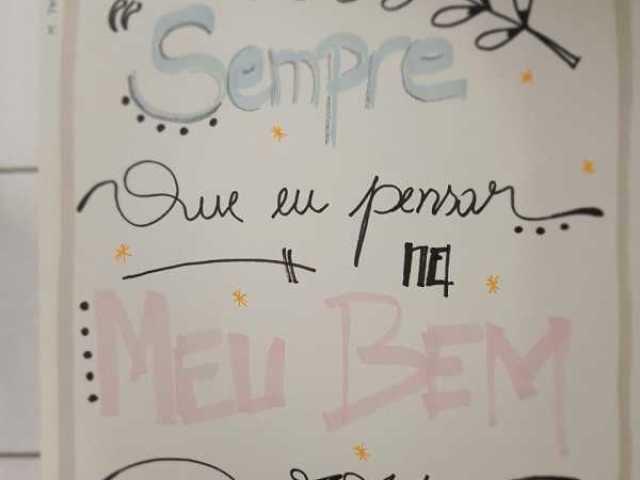 “Sempre
Que eu pensar
ne
MEU BEM